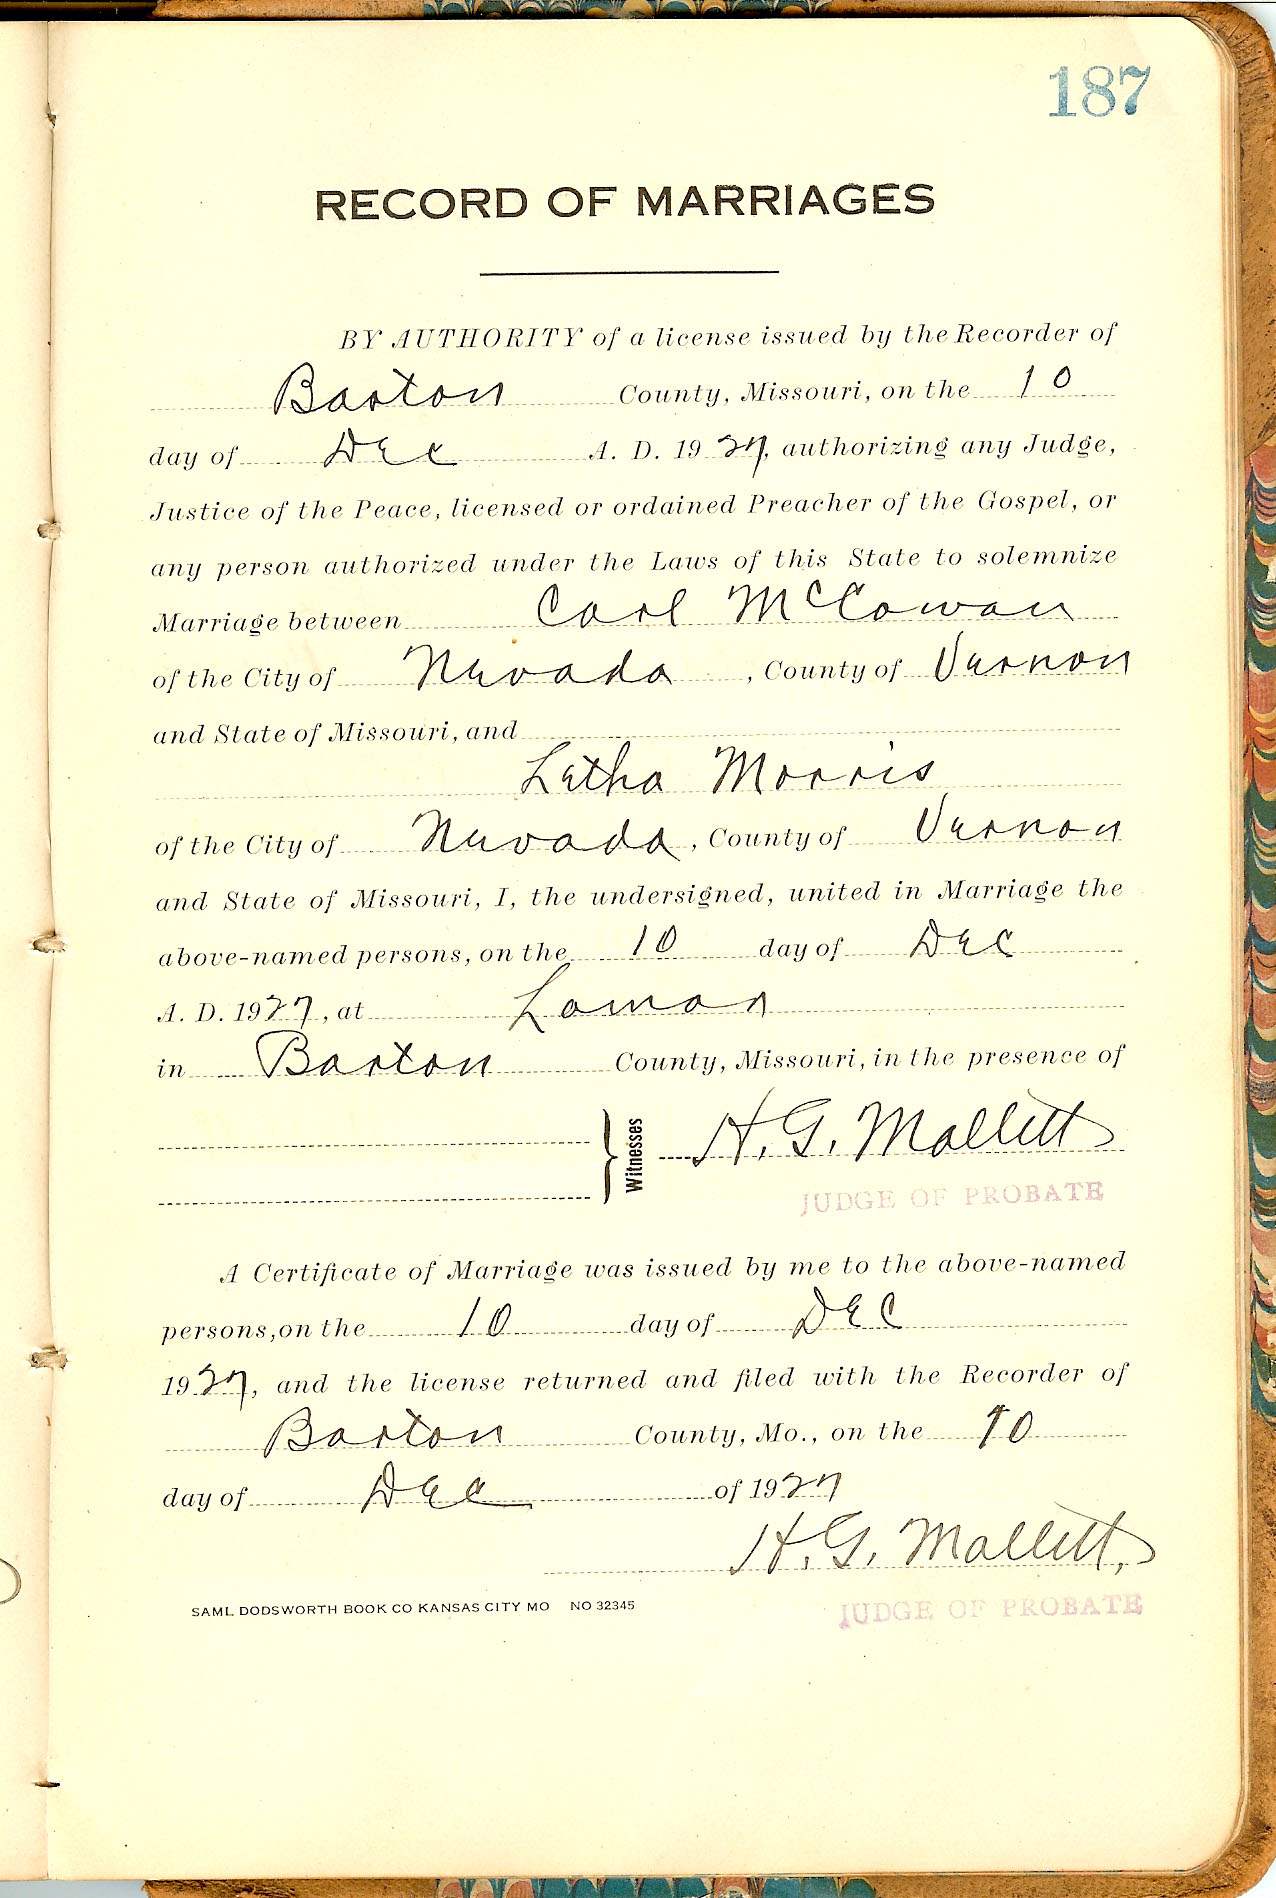 187
RECORD OF MARRIAGES
BY AUTHORITY of a license issued by the Recorder of
Barton County, Missouri, on the 10
day of Dec A. D. 1927, authorizing any Judge,
Justice of the Peace, licensed or ordained Preacher of the Gospel, or
any person authorized under the Laws of this State to solemnize
Marriage between Carl McCowan
of the City of Nevada, County of Vernon
and State of Missouri, and
Letha Morris
of the City of Nevada, County of Vernon
and State of Missouri, I, the undersigned, united in Marriage the
above-named persons, on the 10 day of Dec
A. D. 1927, at Lamar
in Barton County, Missouri, in the presence of
Witnesses H. G. Mallett
JUDGE OF PROBATE
A Certificate of Marriage was issued by me to the above-named
persons, on the 10 day of Dec
1927, and the license returned and filed with the Recorder of
Barton County, Mo., on the 10
day of Dec of 1927
H. G. Mallett,
SAML DODSWORTH BOOK CO KANSAS CITY MO NO 32345
JUDGE OF PROBATE